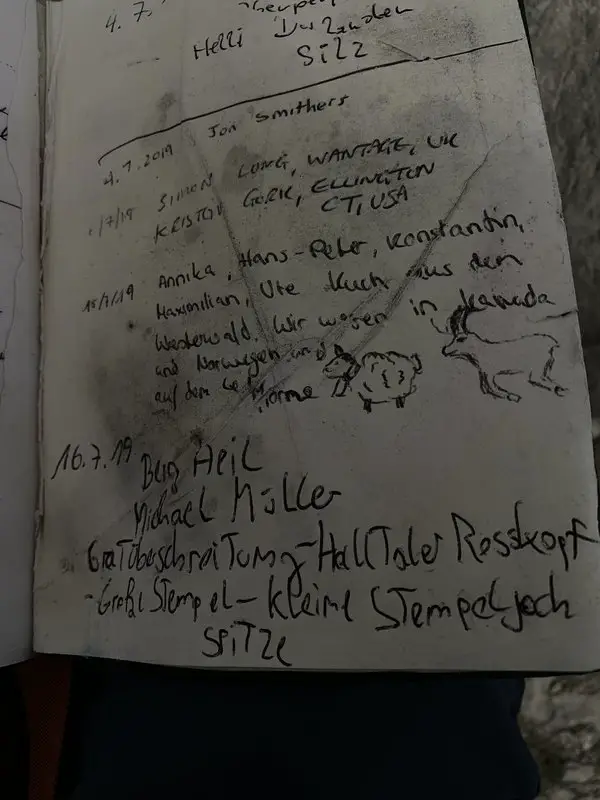 4.7.
Helli
Silz
4.7.2019 Jon Smithers
/7/19 SIMON LONG, WANTAGE, UK
KRISTOV GORK, ELLINGTON
CT, USA
15/7/19 Annika, Hans-Peter, Konstantin,
Maximilian, Ute Kuch aus dem
Westerwald. Wir waren in Kanada
und Norwegen und
auf dem
16.7.19 Berg Heil
Michael Müller
Gratüberschreitung-Halltaler Rosskopf
-Große Stempel-Kleine Stempeljoch
SPITZE